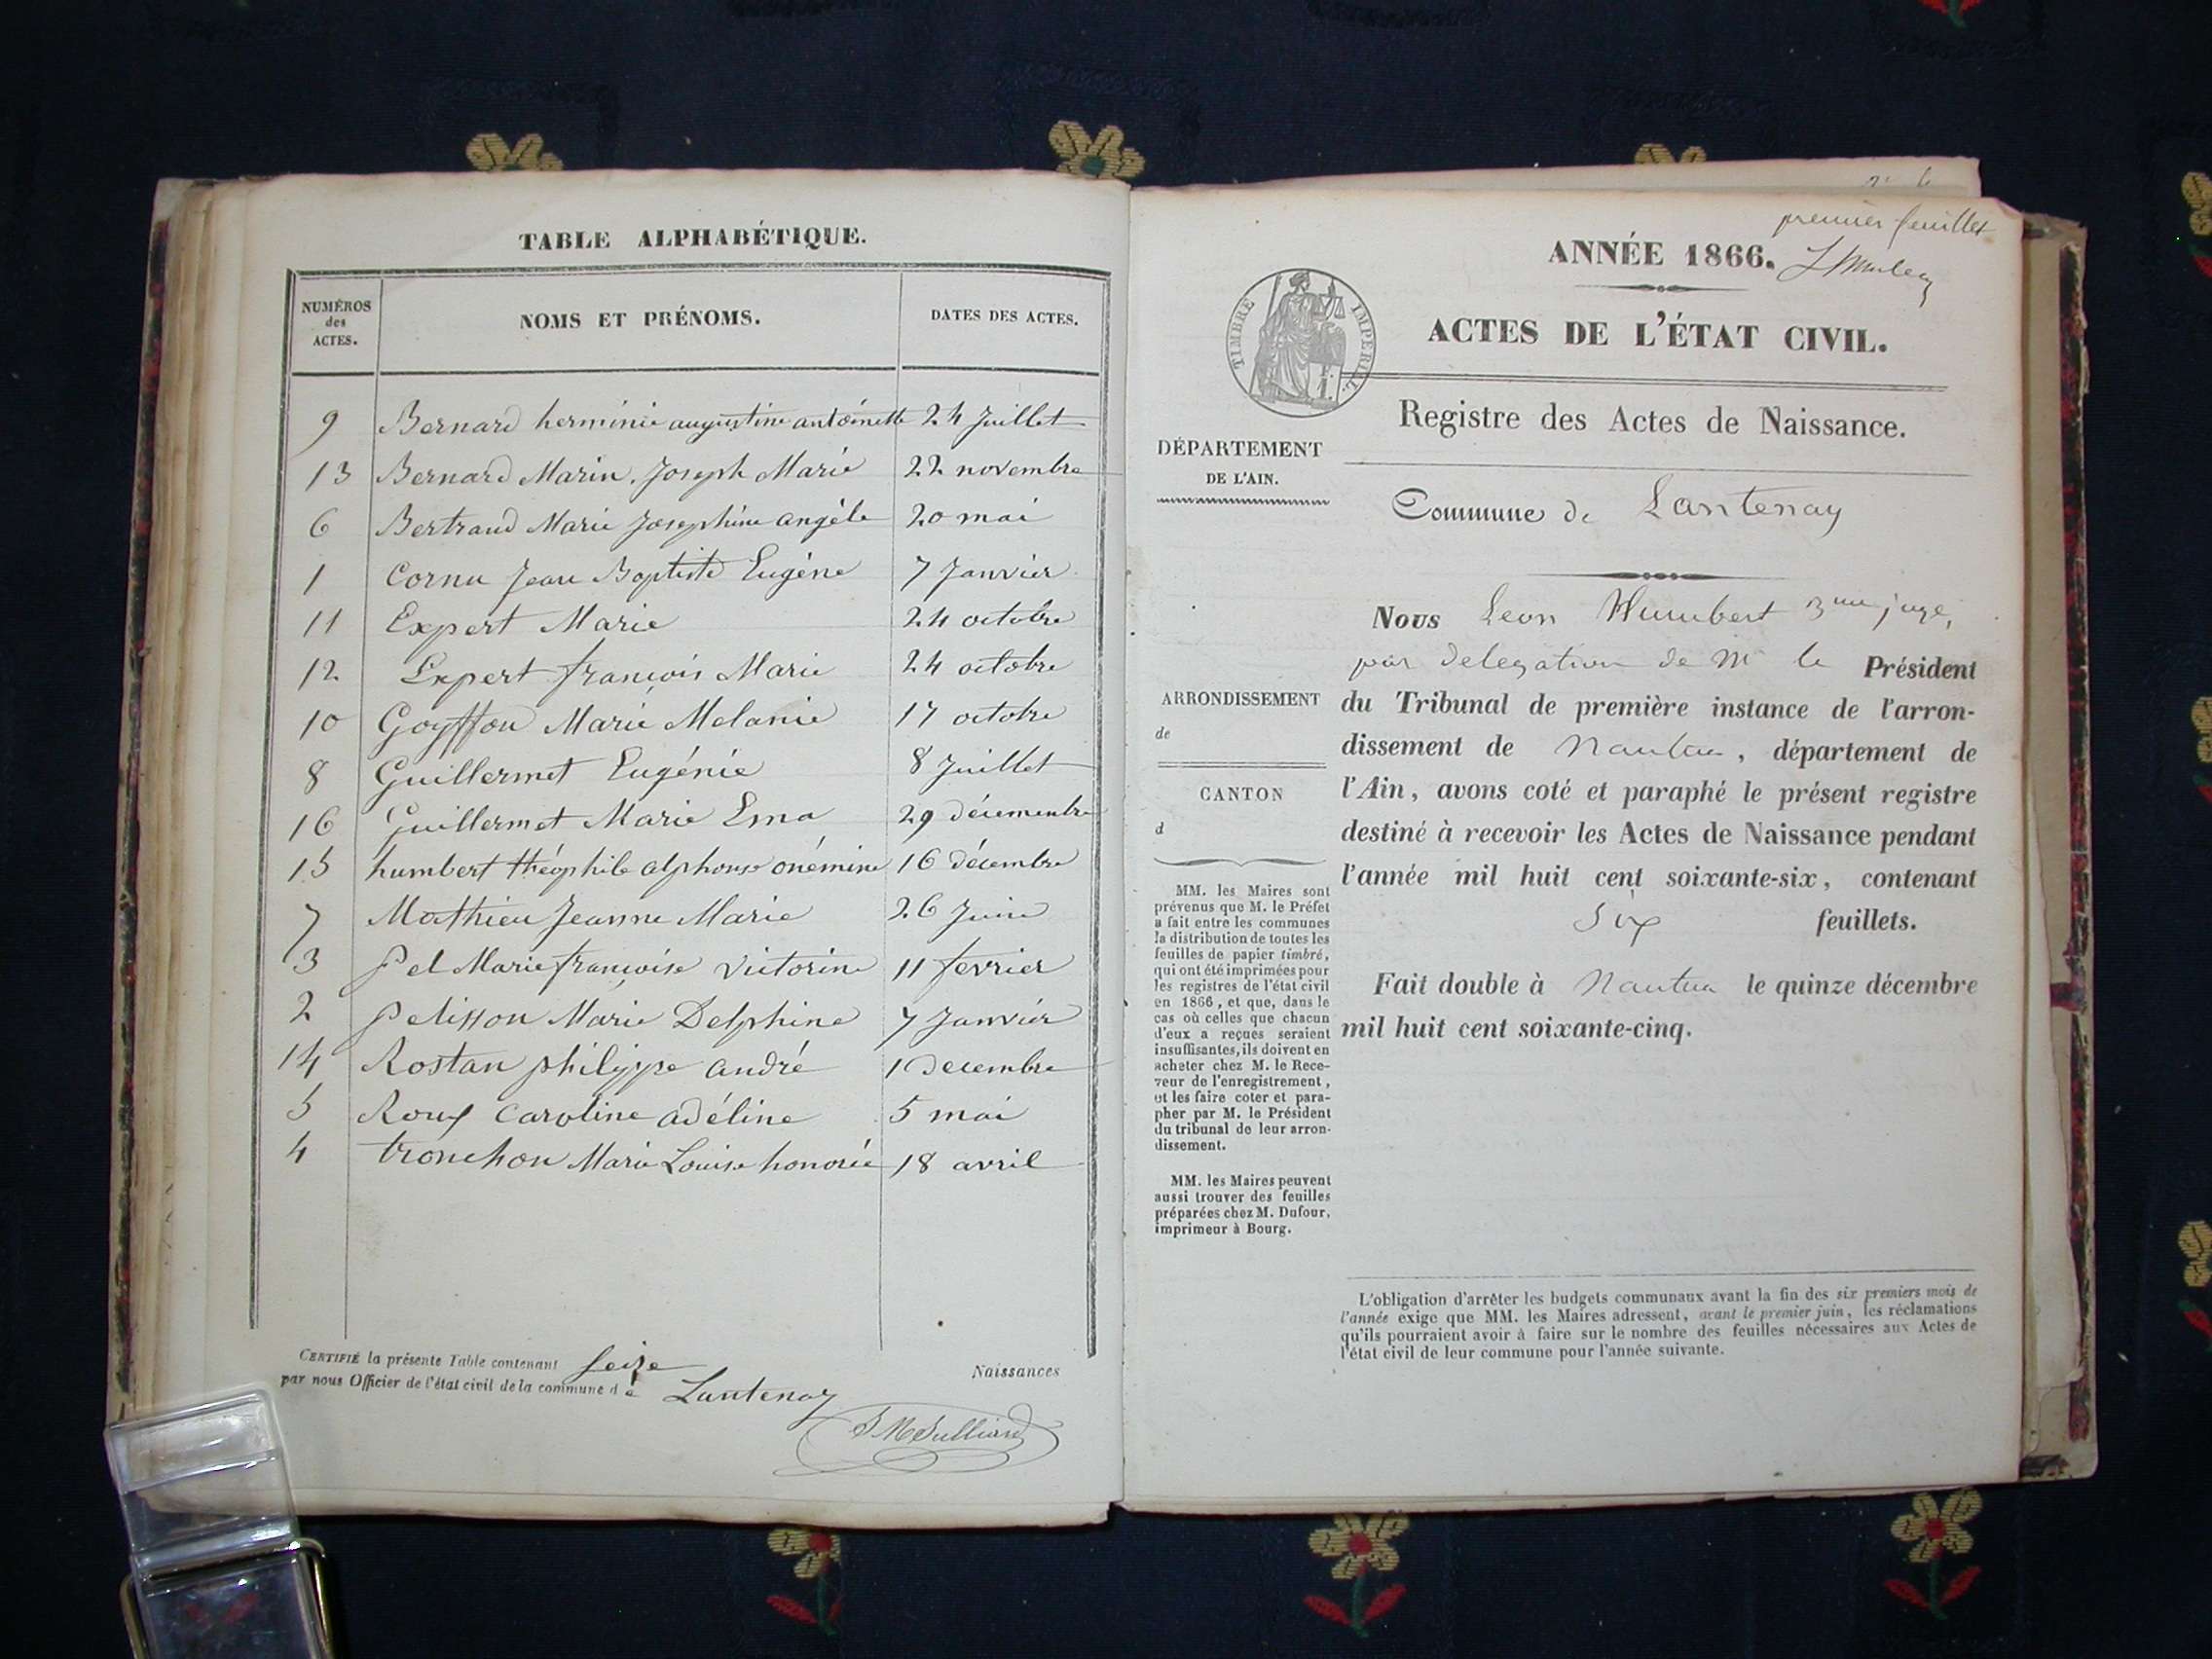 TABLE ALPHABÉTIQUE.
NUMÉROS des ACTES. NOMS ET PRÉNOMS. DATES DES ACTES.
9 Bernard herminie augustine antoinette 24 Juillet
13 Bernard Marin Joseph Marie 22 novembre
6 Bertrand Marie Josephine angèle 20 mai
1 Cornu Jean Baptiste Eugène 7 Janvier
11 Expert Marie 24 octobre
12 Expert françois Marie 24 octobre
10 Goyffon Marie Melanie 17 octobre
8 Guillermet Eugénie 8 Juillet
16 Guillermet Marie Ema 29 décembre
15 humbert théophile alphonse onémine 16 décembre
7 Mathieu Jeanne Marie 26 Juin
3 Pel Marie françoise victorine 11 fevrier
2 Pelisson Marie Delphine 7 Janvier
14 Rostan philippe andré 1 Decembre
5 Roux Caroline adéline 5 mai
4 tronchon Marie Louise honorée 18 avril
CERTIFIÉ la présente Table contenant seize Naissances
par nous Officier de l'état civil de la commune de Lantenay
premier feuillet
ANNÉE 1866.
TIMBRE IMPÉRIAL
ACTES DE L'ÉTAT CIVIL.
Registre des Actes de Naissance.
DÉPARTEMENT
DE L'AIN.
Commune de Lantenay
Nous Leon Humbert 3me juge,
par delegation de Mr le Président
du Tribunal de première instance de l'arron-
dissement de Nantua, département de
l'Ain, avons coté et paraphé le présent registre
destiné à recevoir les Actes de Naissance pendant
l'année mil huit cent soixante-six, contenant
six feuillets.
Fait double à Nantua le quinze décembre
mil huit cent soixante-cinq.
ARRONDISSEMENT
de
CANTON
d
MM. les Maires sont
prévenus que M. le Préfet
a fait entre les communes
la distribution de toutes les
feuilles de papier timbré,
qui ont été imprimées pour
les registres de l'état civil
en 1866, et que, dans le
cas où celles que chacun
d'eux a reçues seraient
insuffisantes, ils doivent en
acheter chez M. le Rece-
veur de l'enregistrement,
et les faire coter et para-
pher par M. le Président
du tribunal de leur arron-
dissement.
MM. les Maires peuvent
aussi trouver des feuilles
préparées chez M. Dufour,
imprimeur à Bourg.
L'obligation d'arrêter les budgets communaux avant la fin des six premiers mois de
l'année exige que MM. les Maires adressent, avant le premier juin, les réclamations
qu'ils pourraient avoir à faire sur le nombre des feuilles nécessaires aux Actes de
l'état civil de leur commune pour l'année suivante.